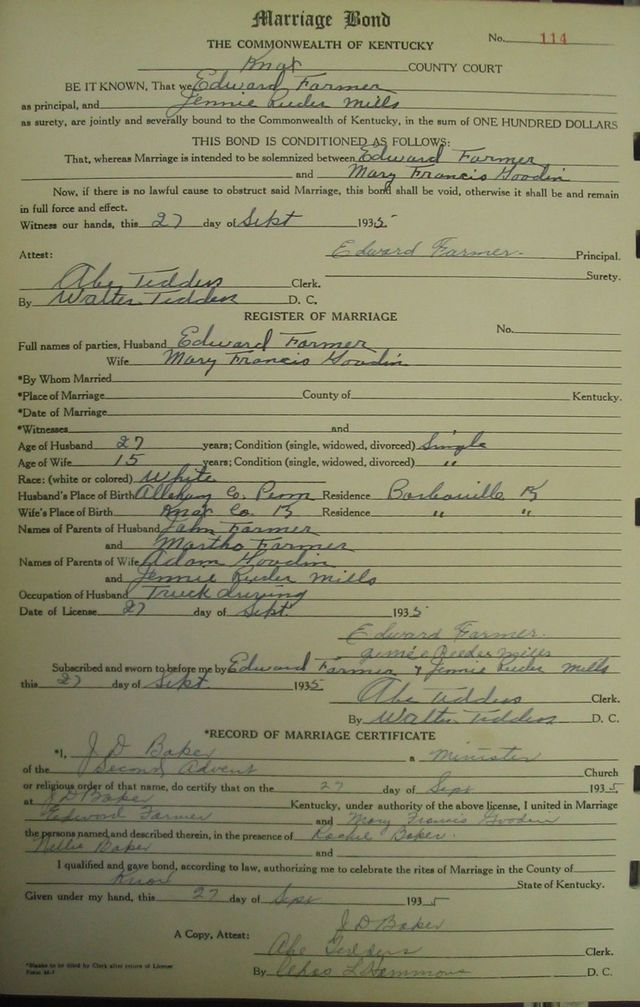 Marriage Bond
No. 114
THE COMMONWEALTH OF KENTUCKY
Knox COUNTY COURT
BE IT KNOWN, That we Edward Farmer
as principal, and Jennie Reeder Mills
as surety, are jointly and severally bound to the Commonwealth of Kentucky, in the sum of ONE HUNDRED DOLLARS
THIS BOND IS CONDITIONED AS FOLLOWS:
That, whereas Marriage is intended to be solemnized between Edward Farmer
and Mary Francis Goodin
Now, if there is no lawful cause to obstruct said Marriage, this bond shall be void, otherwise it shall be and remain
in full force and effect.
Witness our hands, this 27 day of Sept 1935
Attest: Edward Farmer Principal.
Surety.
Abe Tedders Clerk.
By Walter Tedders D. C.
REGISTER OF MARRIAGE
No.
Full names of parties, Husband Edward Farmer
Wife Mary Francis Goodin
*By Whom Married
*Place of Marriage County of Kentucky.
*Date of Marriage
*Witnesses and
Age of Husband 27 years; Condition (single, widowed, divorced) Single
Age of Wife 15 years; Condition (single, widowed, divorced) "
Race: (white or colored) White
Husband's Place of Birth Allehany Co. Penn Residence Barbourville K
Wife's Place of Birth Knox Co. K Residence " "
Names of Parents of Husband John Farmer
and Martha Farmer
Names of Parents of Wife Adam Goodin
and Jennie Reeder Mills
Occupation of Husband Truck driving
Date of License 27 day of Sept. 1935
Edward Farmer.
Reeder Mills
Subscribed and sworn to before me by Edward Farmer & Jennie Reeder Mills
this 27 day of Sept. 1935
Abe Tedders Clerk.
By Walter Tedders D. C.
*RECORD OF MARRIAGE CERTIFICATE
*I, J D Baker a Minister
of the Second Advent Church
or religious order of that name, do certify that on the 27 day of Sept 1935
at J D Baker Kentucky, under authority of the above license, I united in Marriage
Edward Farmer and Mary Francis Gooden
the persons named and described therein, in the presence of Baker.
Nellie Baker and
I qualified and gave bond, according to law, authorizing me to celebrate the rites of Marriage in the County of
Knox State of Kentucky.
Given under my hand, this 27 day of Sept 1935
J D Baker
A Copy, Attest: Abe Tedders Clerk.
*Blanks to be filled by Clerk after return of License
By Chas L Hammons D. C.